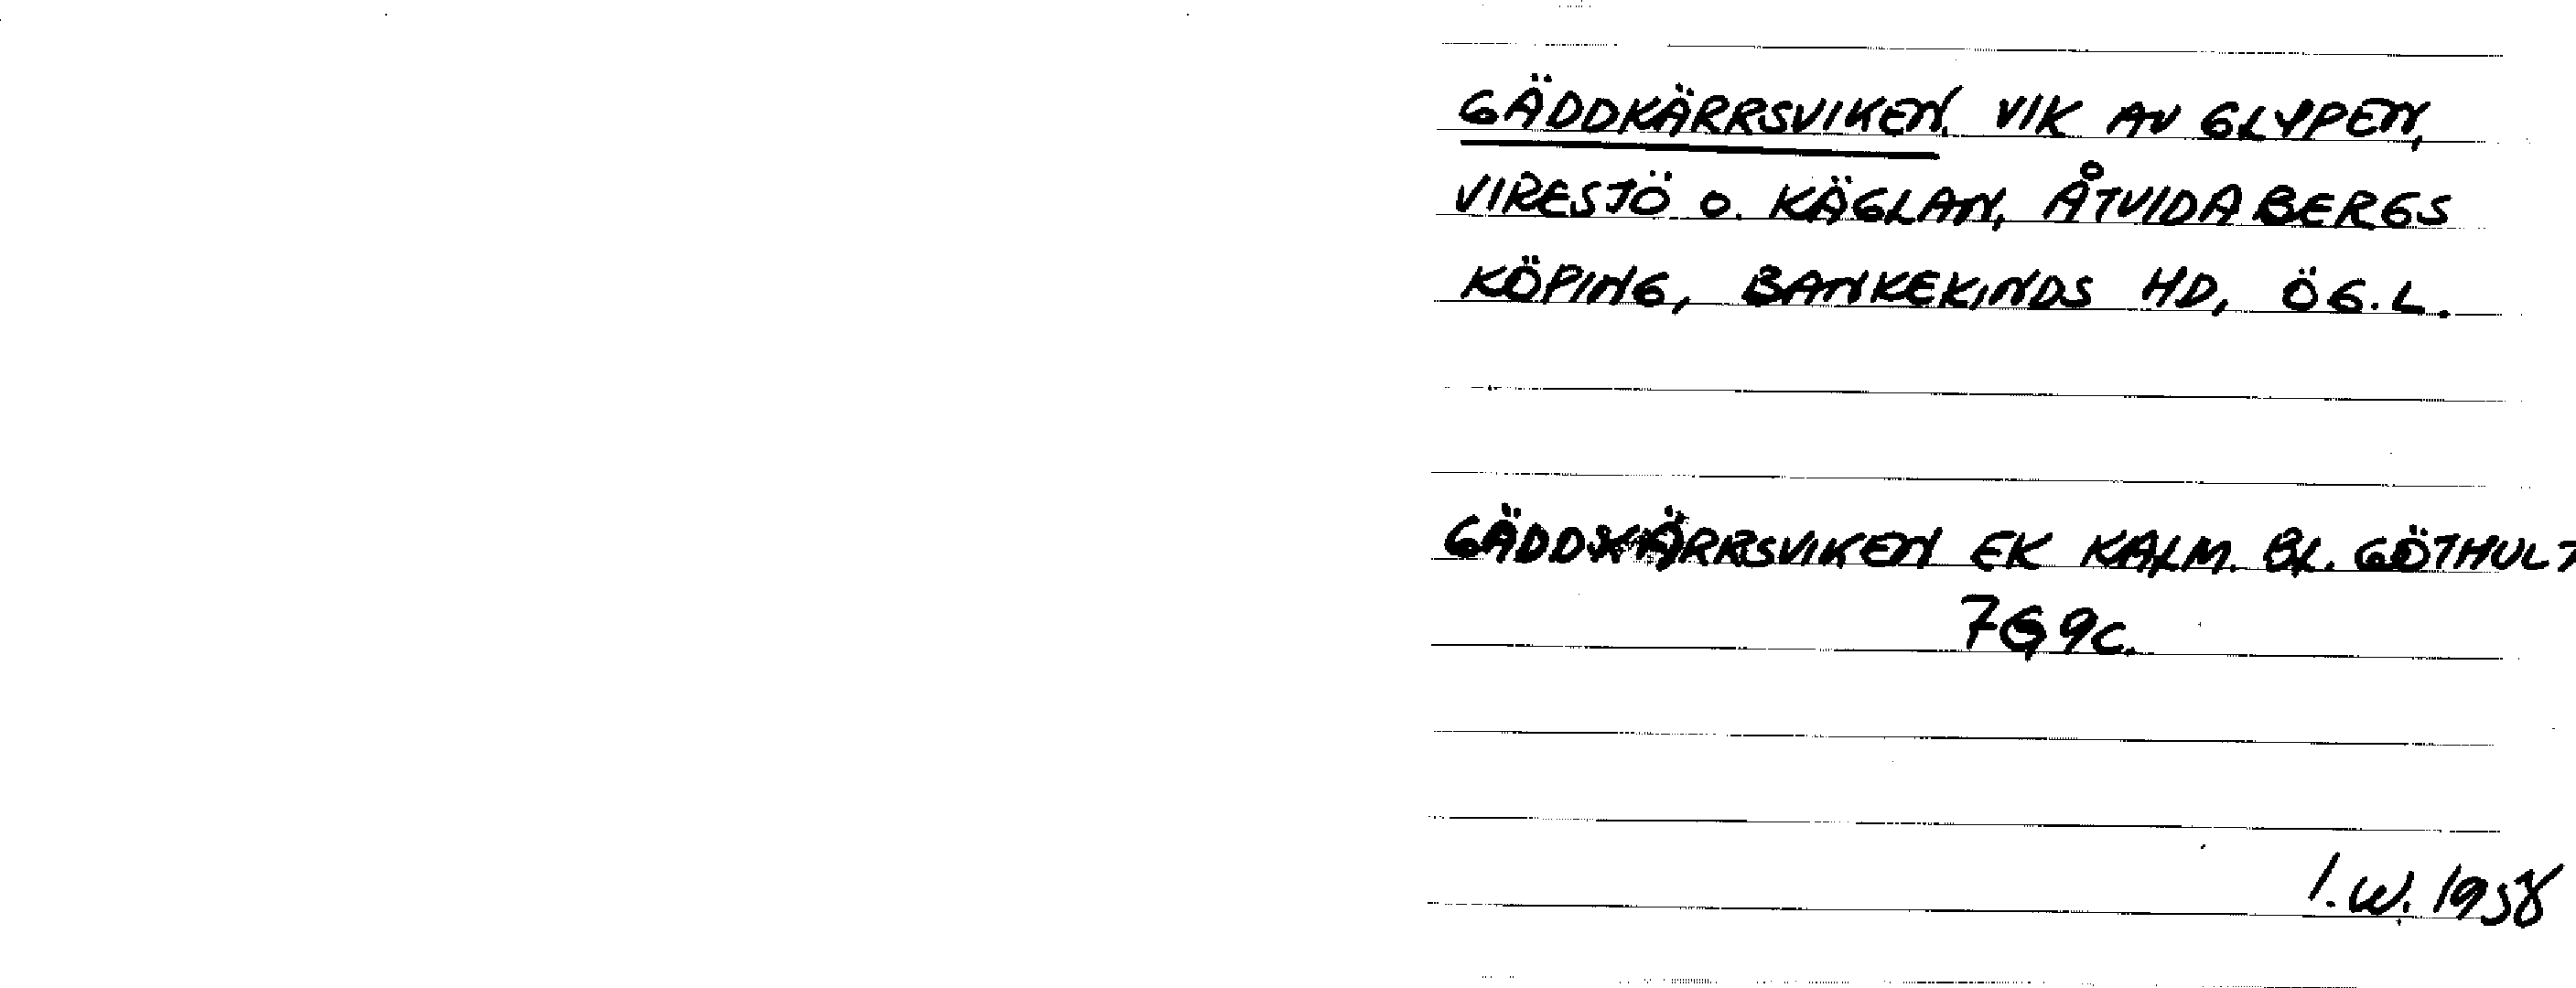 GÄDDKÄRRSVIKEN, VIK AV GLYPEN,
VIRESJÖ O. KÄGLAN, ÅTVIDABERGS
KÖPING, BANKEKINDS HD, ÖG.L.
GÄDDKÄRRSVIKEN EK KALM. BL. GÖTHULT
7G9C.
I.W. 1958